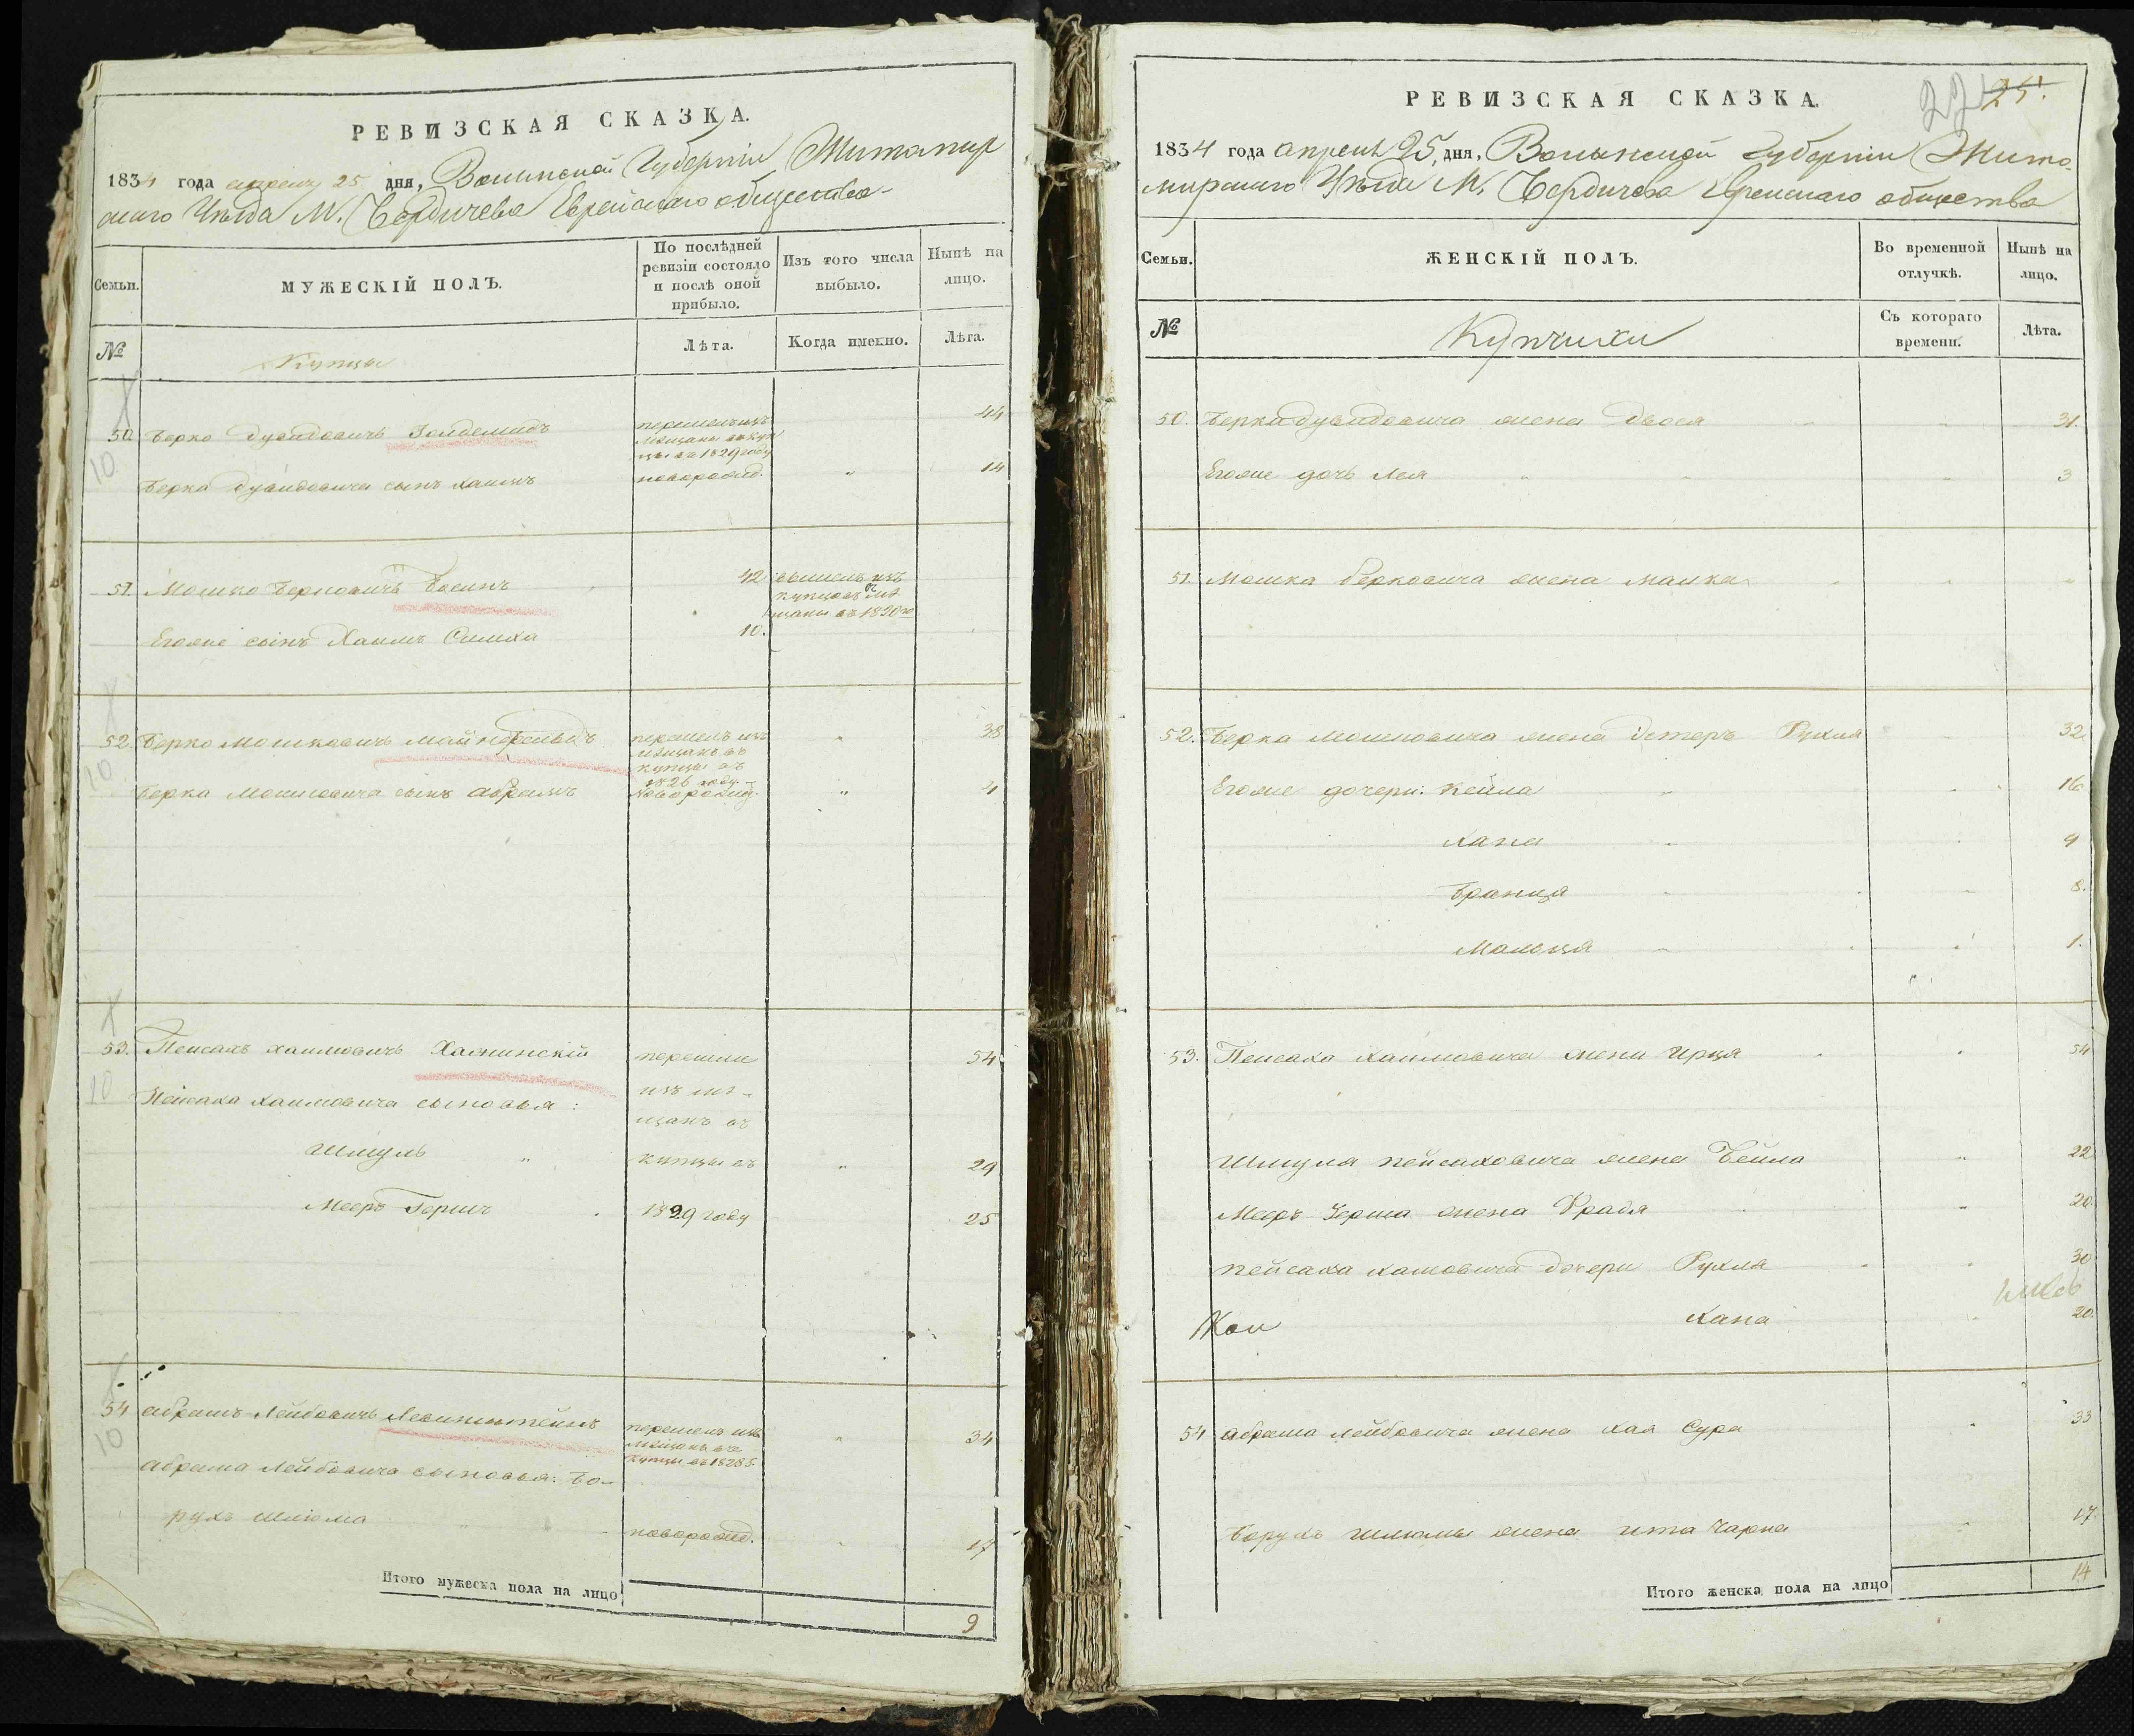 РЕВИЗСКАЯ СКАЗКА.
1834 года апреля 25 дня, Волынской Губернiи Житомир
скаго Уезда М. Бердичева Еврейскаго общества
Семьи.
МУЖЕСКІЙ ПОЛЪ.
По послѣдней ревизіи состояло и послѣ оной прибыло.
Изъ того числа выбыло.
Нынѣ на лицо.
№
Купцы
Лѣта.
Когда именно.
Лѣта.
50. Берко Дувидовичъ 44
10
Берка Дувидовича сынъ Хаимъ новорожд. " 14
51. Мошко Берковичъ 42 вышелъ изъ
купцовъ въ мѣ
щаны въ 1820 го
Егоже сынъ Хаимъ Симха 10.
52. Берко Мошковичъ перешелъ изъ " 38
мѣщанъ въ
купцы въ
1826 году.
10
Берка Мошковича сынъ Абрамъ новорожд. " 4
53. Пейсахъ Хаимовичъ перешли 54
10
Пейсаха Хаимовича сыновья: изъ мѣ-
щанъ въ
Шмуль " купцы въ " 29
Мееръ Гершъ 1829 году 25
54 Абрамъ Лейбовичъ Левинштейнъ перешелъ изъ " 34
мѣщанъ въ
купцы въ 1828 г.
10
Абрама Лейбовича сыновья: Бо-
рухъ Шлiома новорожд. 17
Итого мужеска пола на лицо
9
РЕВИЗСКАЯ СКАЗКА.
22 25.
1834 года апреля 25 дня, Волынской Губернiи Жито
мирскаго Уезда М. Бердичева Еврейскаго общества
Семьи.
ЖЕНСКІЙ ПОЛЪ.
Во временной отлучкѣ.
Нынѣ на лицо.
№
Купчихи
Съ котораго времени.
Лѣта.
50. Берка Дувидовича жена Двося 31
Егоже дочь Лея " 3
51. Мошка Берковича жена Малка "
52. Берка Мошковича жена Эстеръ Рухля 32
Егоже дочери: Кейла 16
Хана 9
Бранця 8.
Мальця 1.
53. Пейсаха Хаимовича жена 54
Шмуля Пейсаховича жена Бейла " 22
Мееръ Герша жена Фрадя 20
Пейсаха Хаимовича дочери Рухля 30
Хана 20.
54 Абрама Лейбовича жена Хая Сура 33
Борухъ Шлiомы жена Ита Чарна 17
Итого женска пола на лицо
14